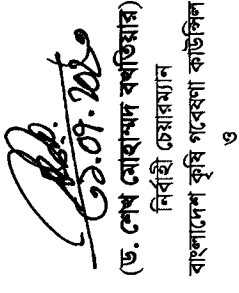 ৩১.০৭.২০২০
(ড. শেখ মোহাম্মদ বখতিয়ার)
নির্বাহী চেয়ারম্যান
বাংলাদেশ কৃষি গবেষণা কাউন্সিল
ও